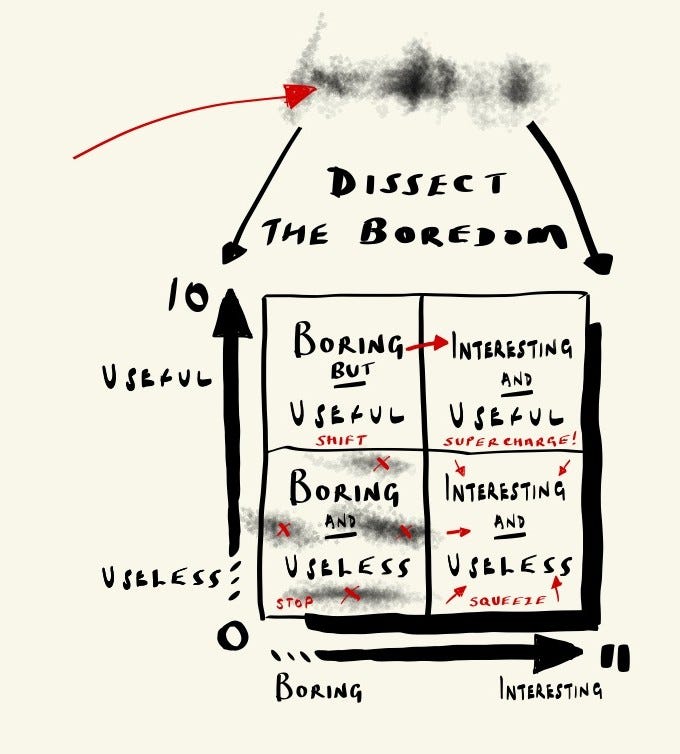 DISSECT
THE BOREDOM
10
USEFUL
USELESS
0
BORING
BUT
USEFUL
SHIFT
INTERESTING
AND
USEFUL
SUPERCHARGE!
BORING
AND
USELESS
STOP
INTERESTING
AND
USELESS
SQUEEZE
11
BORING
INTERESTING